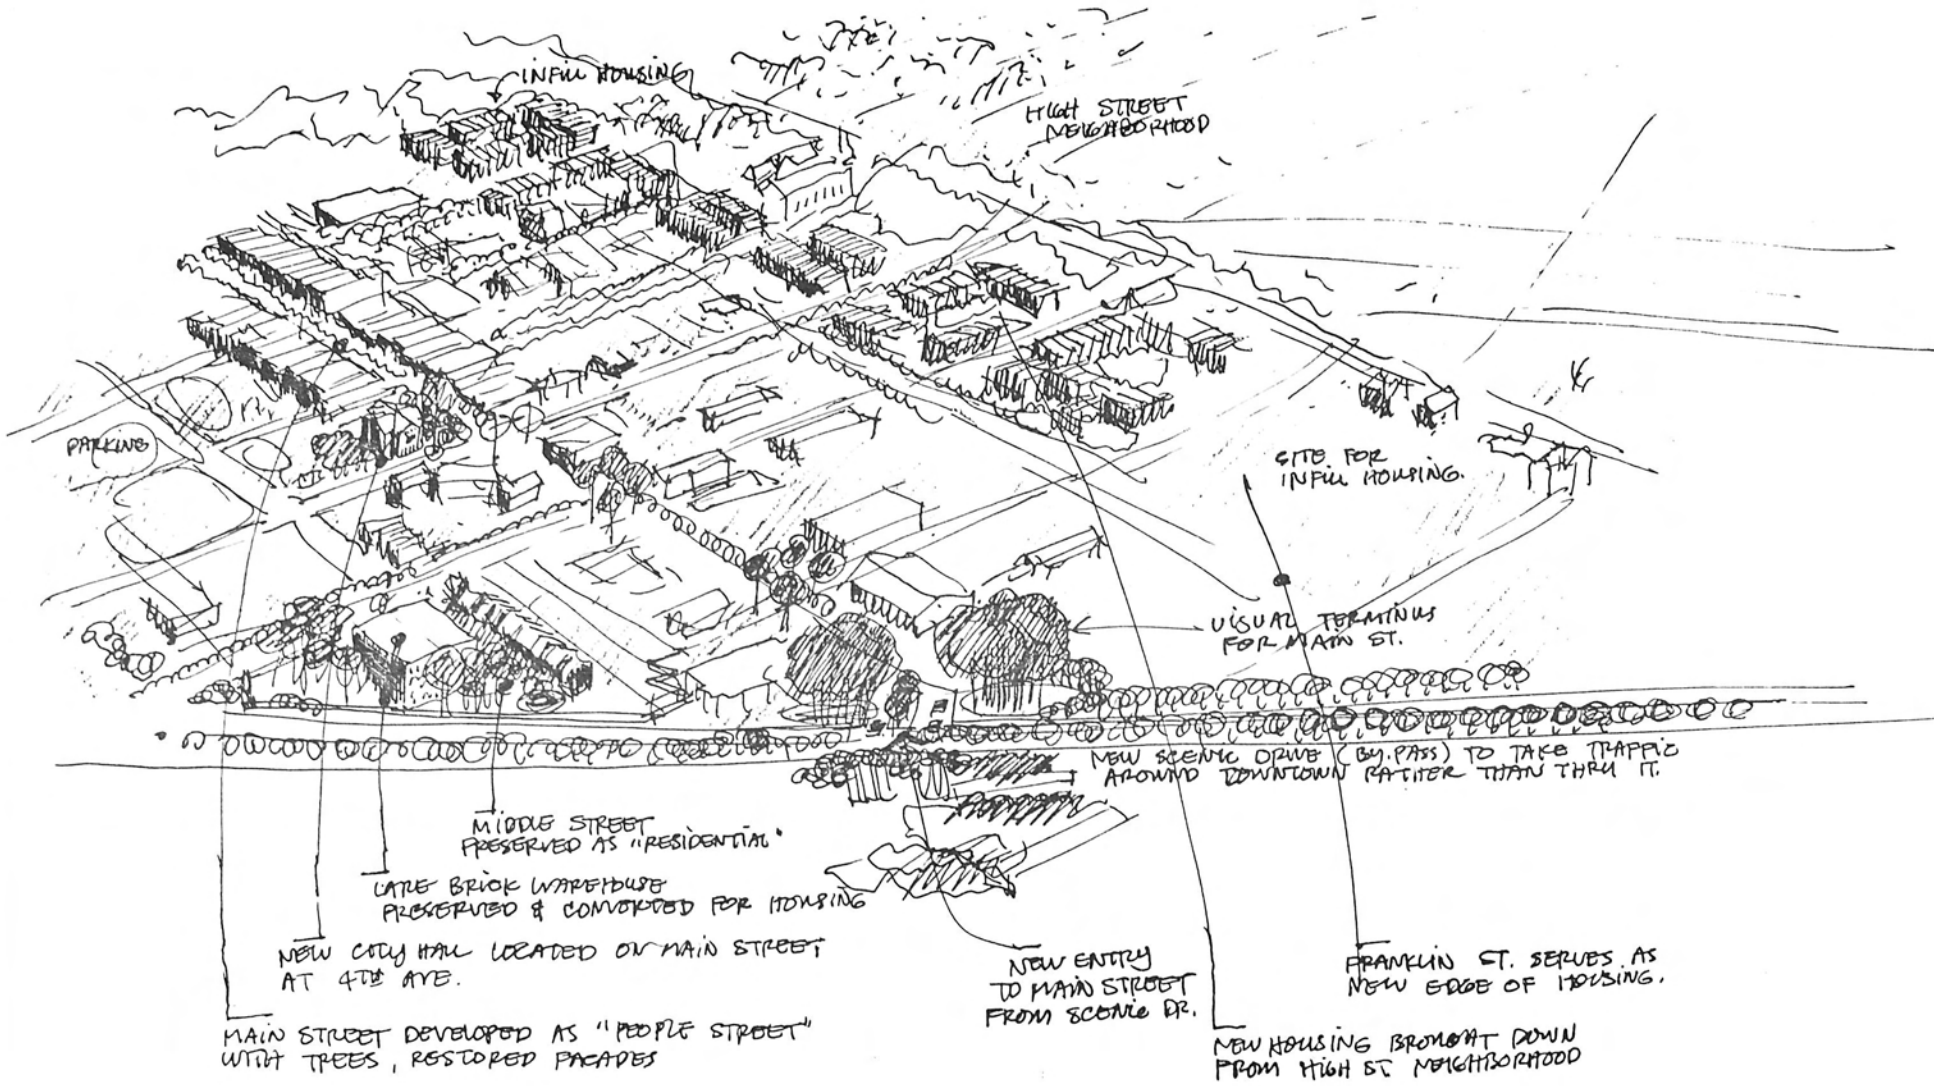 INFILL HOUSING
HIGH STREET
NEIGHBORHOOD
PARKING
SITE FOR
INFILL HOUSING.
VISUAL TERMINUS
FOR MAIN ST.
NEW SCENIC DRIVE (BY.PASS) TO TAKE TRAFFIC
AROUND DOWNTOWN RATHER THAN THRU IT.
MIDDLE STREET
PRESERVED AS "RESIDENTIAL"
LARE BRICK WAREHOUSE
PRESERVED & CONVERTED FOR HOUSING
NEW CITY HALL LOCATED ON MAIN STREET
AT 4TH AVE.
MAIN STREET DEVELOPED AS "PEOPLE STREET"
WITH TREES, RESTORED FACADES
NEW ENTRY
TO MAIN STREET
FROM SCENIC DR.
FRANKLIN ST. SERVES AS
NEW EDGE OF HOUSING.
NEW HOUSING BROUGHT DOWN
FROM HIGH ST. NEIGHBORHOOD